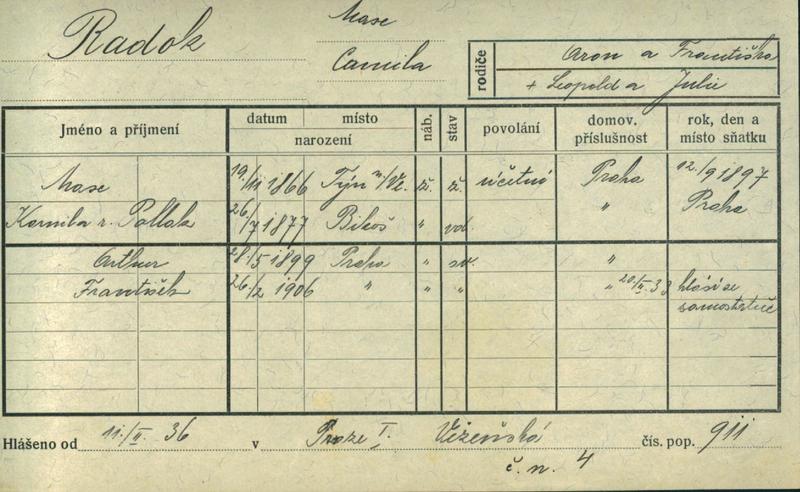 Radok
Maxe
Camila
rodiče
Aron a Františka
+ Leopold a Julie
Jméno a příjmení
datum místo
narození
náb.
stav
povolání
domov. příslušnost
rok, den a místo sňatku
Maxe 19./11 1866 Týn n/Vl. ž. ž. účetní Praha 12./9 1897
Kamila r. Pollak 26./7 1877 " vd. " Praha
Arthur 28./5 1899 Praha " sv. "
František 26./2 1906 " " " " 20./II. 33 hlásí se
samostatně
Hlášeno od 11./II. 36 v Praze I. Vězeňská čís. pop. 911
č. n. 4